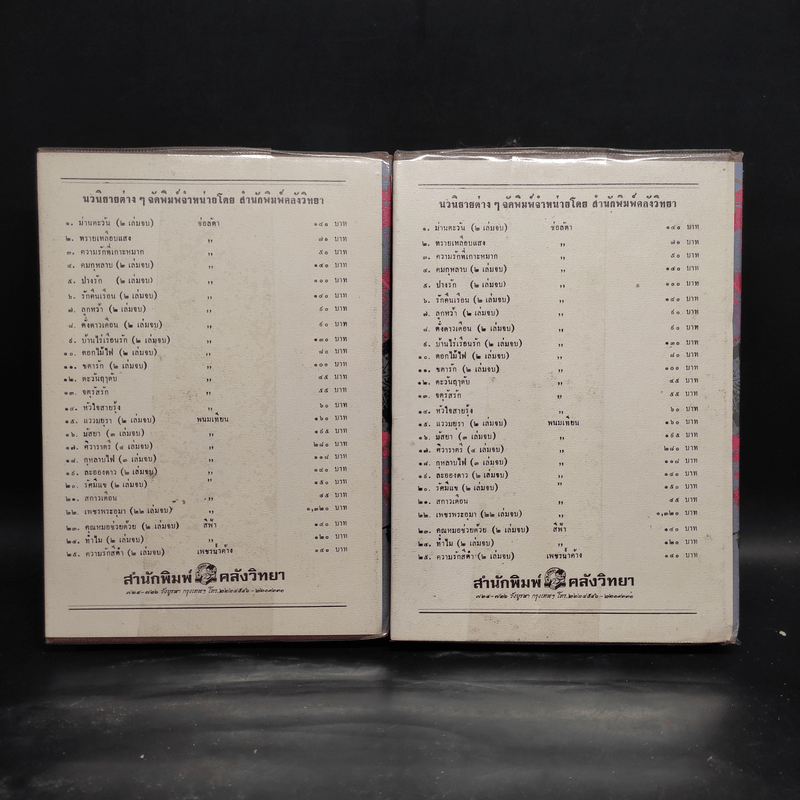 นวนิยายต่าง ๆ จัดพิมพ์จำหน่ายโดย สำนักพิมพ์คลังวิทยา
๑. ม่านตะวัน (๒ เล่มจบ) ช่อลัดา ๑๔๐ บาท
๒. ทรายเหลือบแสง ,, ๗๐ บาท
๓. ความรักที่เกาะหมาก ,, ๕๐ บาท
๔. คมกุหลาบ (๒ เล่มจบ) ,, ๑๔๐ บาท
๕. ปางรัก (๒ เล่มจบ) ,, ๑๐๐ บาท
๖. รักคืนเรือน (๒ เล่มจบ) ,, ๑๔๐ บาท
๗. ลูกหว้า (๒ เล่มจบ) ,, ๙๐ บาท
๘. ดั่งดาวเดือน (๒ เล่มจบ) ,, ๙๐ บาท
๙. บ้านไร่เรือนรัก (๒ เล่มจบ) ,, ๑๓๐ บาท
๑๐. ดอกไม้ไฟ (๒ เล่มจบ) ,, ๘๐ บาท
๑๑. ชตารัก (๒ เล่มจบ) ,, ๑๐๐ บาท
๑๒. ตะวันฤาดับ ,, ๔๕ บาท
๑๓. จตุรัสรัก ,, ๕๕ บาท
๑๔. หัวใจสายรุ้ง ,, ๖๐ บาท
๑๕. แววมยุรา (๒ เล่มจบ) พนมเทียน ๑๖๐ บาท
๑๖. มัสยา (๓ เล่มจบ) ,, ๑๖๕ บาท
๑๗. ศิวาราตรี (๔ เล่มจบ) ,, ๒๘๐ บาท
๑๘. กุหลาบไฟ (๓ เล่มจบ) ,, ๑๑๘ บาท
๑๙. ละอองดาว (๒ เล่มจบ) ,, ๑๔๐ บาท
๒๐. รัศมีแข (๒ เล่มจบ) ,, ๑๕๐ บาท
๒๑. สกาวเดือน ,, ๔๕ บาท
๒๒. เพชรพระอุมา (๒๒ เล่มจบ) ,, ๑,๓๒๐ บาท
๒๓. คุณหมอช่วยด้วย (๒ เล่มจบ) สีฟ้า ๑๔๐ บาท
๒๔. ทำไม (๒ เล่มจบ) ,, ๑๒๐ บาท
๒๕. ความรักสีดำ (๒ เล่มจบ) เพชรน้ำค้าง ๑๔๐ บาท
สำนักพิมพ์ คลังวิทยา
วังบูรพา กรุงเทพฯ โทร.
นวนิยายต่าง ๆ จัดพิมพ์จำหน่ายโดย สำนักพิมพ์คลังวิทยา
๑. ม่านตะวัน (๒ เล่มจบ) ช่อลัดา ๑๔๐ บาท
๒. ทรายเหลือบแสง ,, ๗๐ บาท
๓. ความรักที่เกาะหมาก ,, ๕๐ บาท
๔. คมกุหลาบ (๒ เล่มจบ) ,, ๑๔๐ บาท
๕. ปางรัก (๒ เล่มจบ) ,, ๑๐๐ บาท
๖. รักคืนเรือน (๒ เล่มจบ) ,, ๑๔๐ บาท
๗. ลูกหว้า (๒ เล่มจบ) ,, ๙๐ บาท
๘. ดั่งดาวเดือน (๒ เล่มจบ) ,, ๙๐ บาท
๙. บ้านไร่เรือนรัก (๒ เล่มจบ) ,, ๑๓๐ บาท
๑๐. ดอกไม้ไฟ (๒ เล่มจบ) ,, ๘๐ บาท
๑๑. ชตารัก (๒ เล่มจบ) ,, ๑๐๐ บาท
๑๒. ตะวันฤาดับ ,, ๔๕ บาท
๑๓. จตุรัสรัก ,, ๕๕ บาท
๑๔. หัวใจสายรุ้ง ,, ๖๐ บาท
๑๕. แววมยุรา (๒ เล่มจบ) พนมเทียน ๑๖๐ บาท
๑๖. มัสยา (๓ เล่มจบ) ,, ๑๖๕ บาท
๑๗. ศิวาราตรี (๔ เล่มจบ) ,, ๒๘๐ บาท
๑๘. กุหลาบไฟ (๓ เล่มจบ) ,, ๑๑๘ บาท
๑๙. ละอองดาว (๒ เล่มจบ) ,, ๑๔๐ บาท
๒๐. รัศมีแข (๒ เล่มจบ) ,, ๑๕๐ บาท
๒๑. สกาวเดือน ,, ๔๕ บาท
๒๒. เพชรพระอุมา (๒๒ เล่มจบ) ,, ๑,๓๒๐ บาท
๒๓. คุณหมอช่วยด้วย (๒ เล่มจบ) สีฟ้า ๑๔๐ บาท
๒๔. ทำไม (๒ เล่มจบ) ,, ๑๒๐ บาท
๒๕. ความรักสีดำ (๒ เล่มจบ) เพชรน้ำค้าง ๑๔๐ บาท
สำนักพิมพ์ คลังวิทยา
วังบูรพา กรุงเทพฯ โทร.